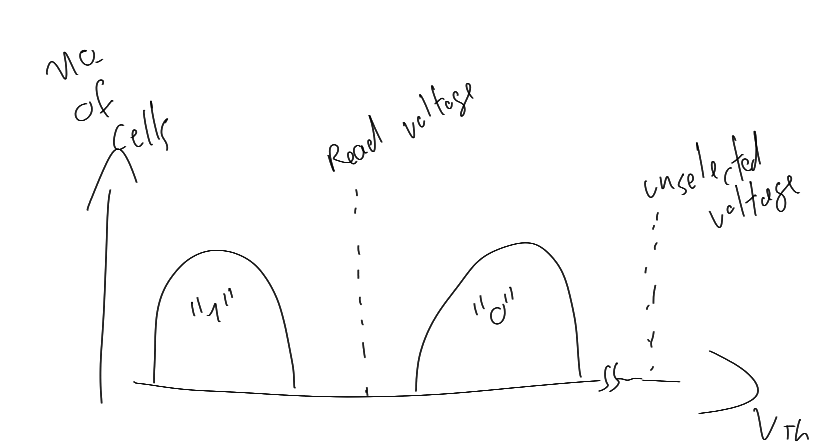 no
of
cells
Read voltage
unselected
voltage
"1"
"0"
VTh